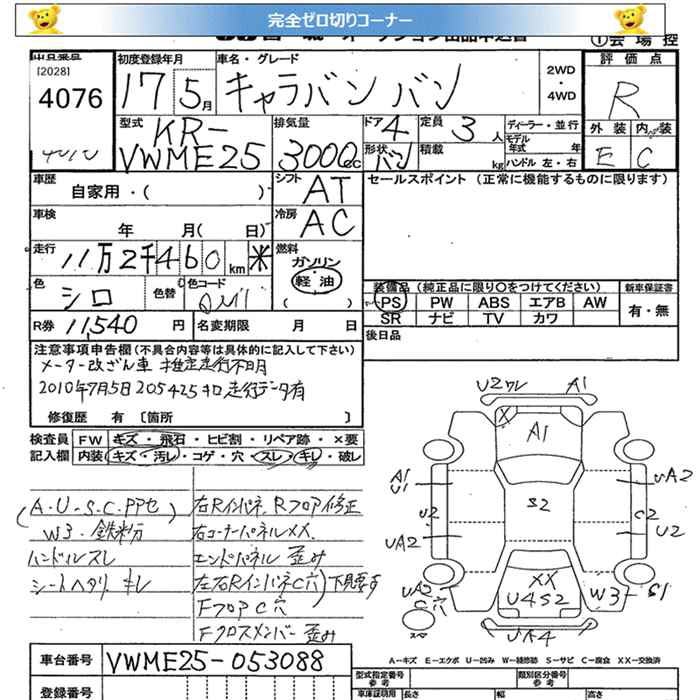 完全ゼロ切りコーナー
①会場控
[2028]
4076
初度登録年月
17 5月
車名・グレード
キャラバン バン
2WD
・
4WD
評価点
R
外装 内装
E C
型式
KR-
VWME25
排気量
3000cc
ドア 4
形状 バン
定員 3人
積載 kg
ディーラー・並行
モデル
年式 年
ハンドル 左・右
車歴
自家用・( )
シフト AT
セールスポイント (正常に機能するものに限ります)
車検
年 月( 日)
冷房 AC
走行
11万2千460km ※
燃料
ガソリン
軽油
( )
色
シロ
色替
色コード
装備品 (純正品に限り○をつけてください)
新車保証書
PS PW ABS エアB AW
有・無
SR ナビ TV カワ
R券 11,540円
名変期限 月 日
後日品
注意事項申告欄 (不具合内容等は具体的に記入して下さい)
メーター改ざん車 推定走行不明
2010年7月5日 205425キロ走行データ有
修復歴 有 〔箇所 〕
検査員 FW キズ・飛石・ヒビ割・リペア跡・×要
記入欄 内装 キズ・汚レ・コゲ・穴・スレ・キレ・破レ
(A・U・S・C・PPセ)
W3・鉄粉
ハンドルスレ
シートヘタリ キレ
右Rインパネ、Rフロア修正
右コーナーパネルXX、
エンドパネル 歪み
左右RインパネC穴)下見要す
FフロアC穴
Fクロスメンバー歪み
U2ワレ A1
X
A1
A1
U1
U2
UA2
S2
UA2
C2
U2
UA2
C穴
XX
U4S2
W3
S1
UA4
スペア
A－キズ E－エクボ U－凹み W－補修跡 S－サビ C－腐食 XX－交換済
車台番号 VWME25-053088
型式指定番号
参考
類別区分番号
参考
登録番号
車庫証明用
長さ 幅 高さ